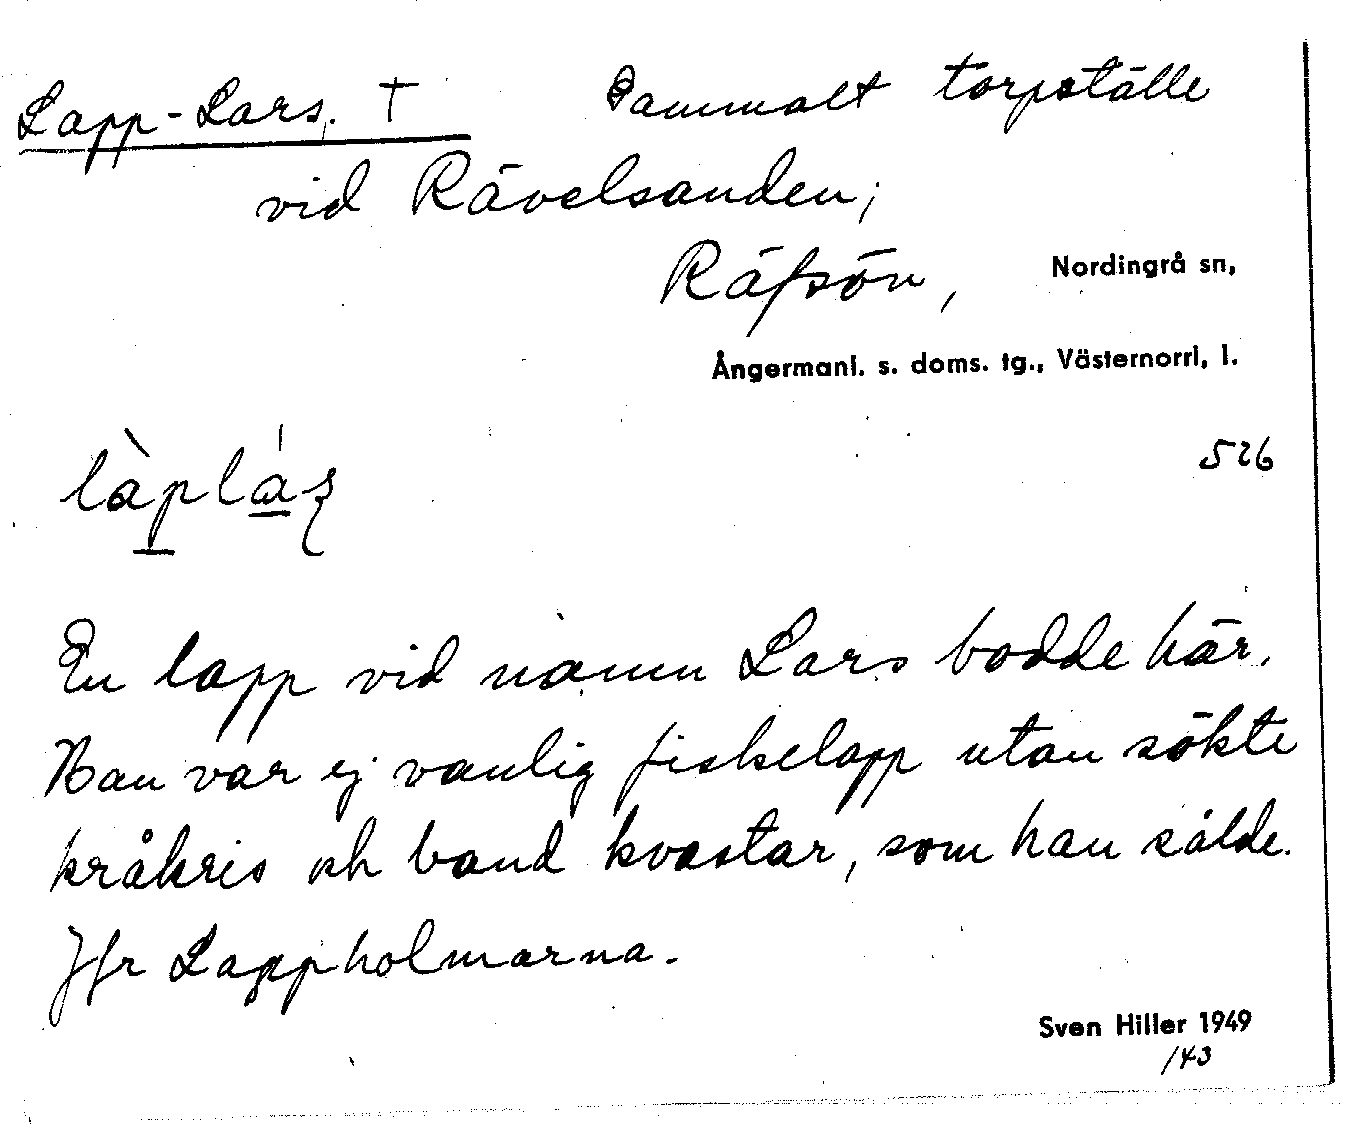 Lapp-Lars. † Gammalt torpställe
vid Rävelsanden;
Räfsön, Nordingrå sn,
Ångermanl. s. doms. tg., Västernorrl. l.
526
làpláʂ
En lapp vid namn Lars bodde här.
Han var ej vanlig fiskelapp utan sökte
kråkris och band kvastar, som han sålde.
Jfr Lappholmarna.
Sven Hiller 1949
143